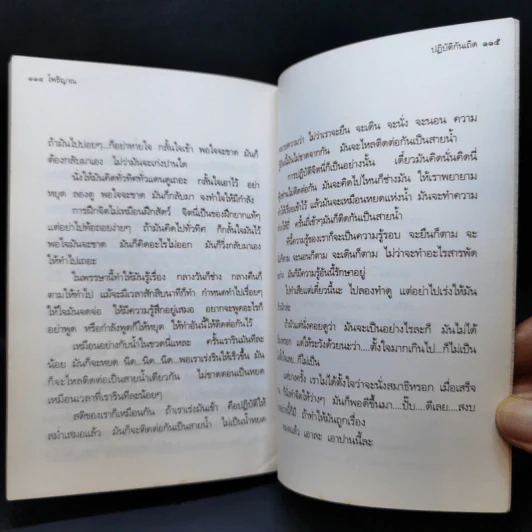 ๑๑๔ โพธิญาณ
ถ้ามันไปบ่อยๆ...ก็อย่าหายใจ กลั้นใจเข้า พอใจจะขาด มันก็
ต้องกลับมาเอง ไม่ว่ามันจะเก่งปานใด
นั่งให้มันคิดทั่วทิศทั่วแดนดูเถอะ กลั้นใจเอาไว้ อย่า
หยุด ลองดู พอใจจะขาด มันก็กลับมา จงทำใจให้มีกำลัง
การฝึกจิตไม่เหมือนฝึกสัตว์ จิตนี่เป็นของฝึกยากแท้ๆ
แต่อย่าไปท้อถอยง่ายๆ ถ้ามันคิดไปทั่วทิศ ก็กลั้นใจมันไว้
พอใจมันจะขาด มันก็คิดอะไรไม่ออก มันก็วิ่งกลับมาเอง
ให้ทำไปเถอะ
ในพรรษานี้ทำให้มันรู้เรื่อง กลางวันก็ช่าง กลางคืนก็
ตามให้ทำไป แม้จะมีเวลาสักสิบนาทีก็ทำ กำหนดทำไปเรื่อยๆ
ให้ใจมันจดจ่อ ให้มีความรู้สึกอยู่เสมอ อยากจะพูดอะไรก็
อย่าพูด หรือกำลังพูดก็ให้หยุด ให้ทำอันนี้ให้ติดต่อกันไว้
เหมือนอย่างกับน้ำในขวดนี่แหละ ครั้นเรารินมันทีละ
น้อย มันก็จะหยด นืด...นืด...นืด...พอเราเร่งรินให้เร็วขึ้น มัน
ก็จะไหลติดต่อเป็นสายน้ำเดียวกัน ไม่ขาดตอนเป็นหยด
เหมือนเวลาที่เรารินทีละน้อยๆ
สติของเราก็เหมือนกัน ถ้าเราเร่งมันเข้า คือปฏิบัติให้
สม่ำเสมอแล้ว มันก็จะติดต่อกันเป็นสายน้ำ ไม่เป็นน้ำหยด
ปฏิบัติกันเถิด ๑๑๕
ความว่า ไม่ว่าเราจะยืน จะเดิน จะนั่ง จะนอน ความ
รู้อันนี้มันไม่ขาดจากกัน มันจะไหลติดต่อกันเป็นสายน้ำ
การปฏิบัติจิตนี่ก็เป็นอย่างนั้น เดี๋ยวมันคิดนั่นคิดนี่
ฟุ้งซ่านไม่ติดต่อกัน มันจะคิดไปไหนก็ช่างมัน ให้เราพยายาม
ทำให้เรื่อยเข้าไว้ แล้วมันจะเหมือนหยดแห่งน้ำ มันจะทำความ
ห่างให้ถี่ ครั้นถี่เข้าๆมันก็ติดกันเป็นสายน้ำ
ทีนี้ความรู้ของเราก็จะเป็นความรู้รอบ จะยืนก็ตาม จะ
นั่งก็ตาม จะนอนก็ตาม จะเดินก็ตาม ไม่ว่าจะทำอะไรสารพัด
มันก็มีความรู้อันนี้รักษาอยู่
ไปทำเสียแต่เดี๋ยวนี้นะ ไปลองทำดู แต่อย่าไปเร่งให้มัน
ถ้ามัวแต่นั่งคอยดูว่า มันจะเป็นอย่างไรละก็ มันไม่ได้
แต่ให้ระวังด้วยนะว่า....ตั้งใจมากเกินไป...ก็ไม่เป็น
ไม่ตั้งใจเลย...ก็ไม่เป็น
แต่บางครั้ง เราไม่ได้ตั้งใจว่าจะนั่งสมาธิหรอก เมื่อเสร็จ
ก็นั่งทำจิตให้ว่างๆ มันก็พอดีขึ้นมา...ปั๊บ...ดีเลย...สงบ
ถ้าทำให้มันถูกเรื่อง
หมดแล้ว เอาละ เอาปานนี้ละ